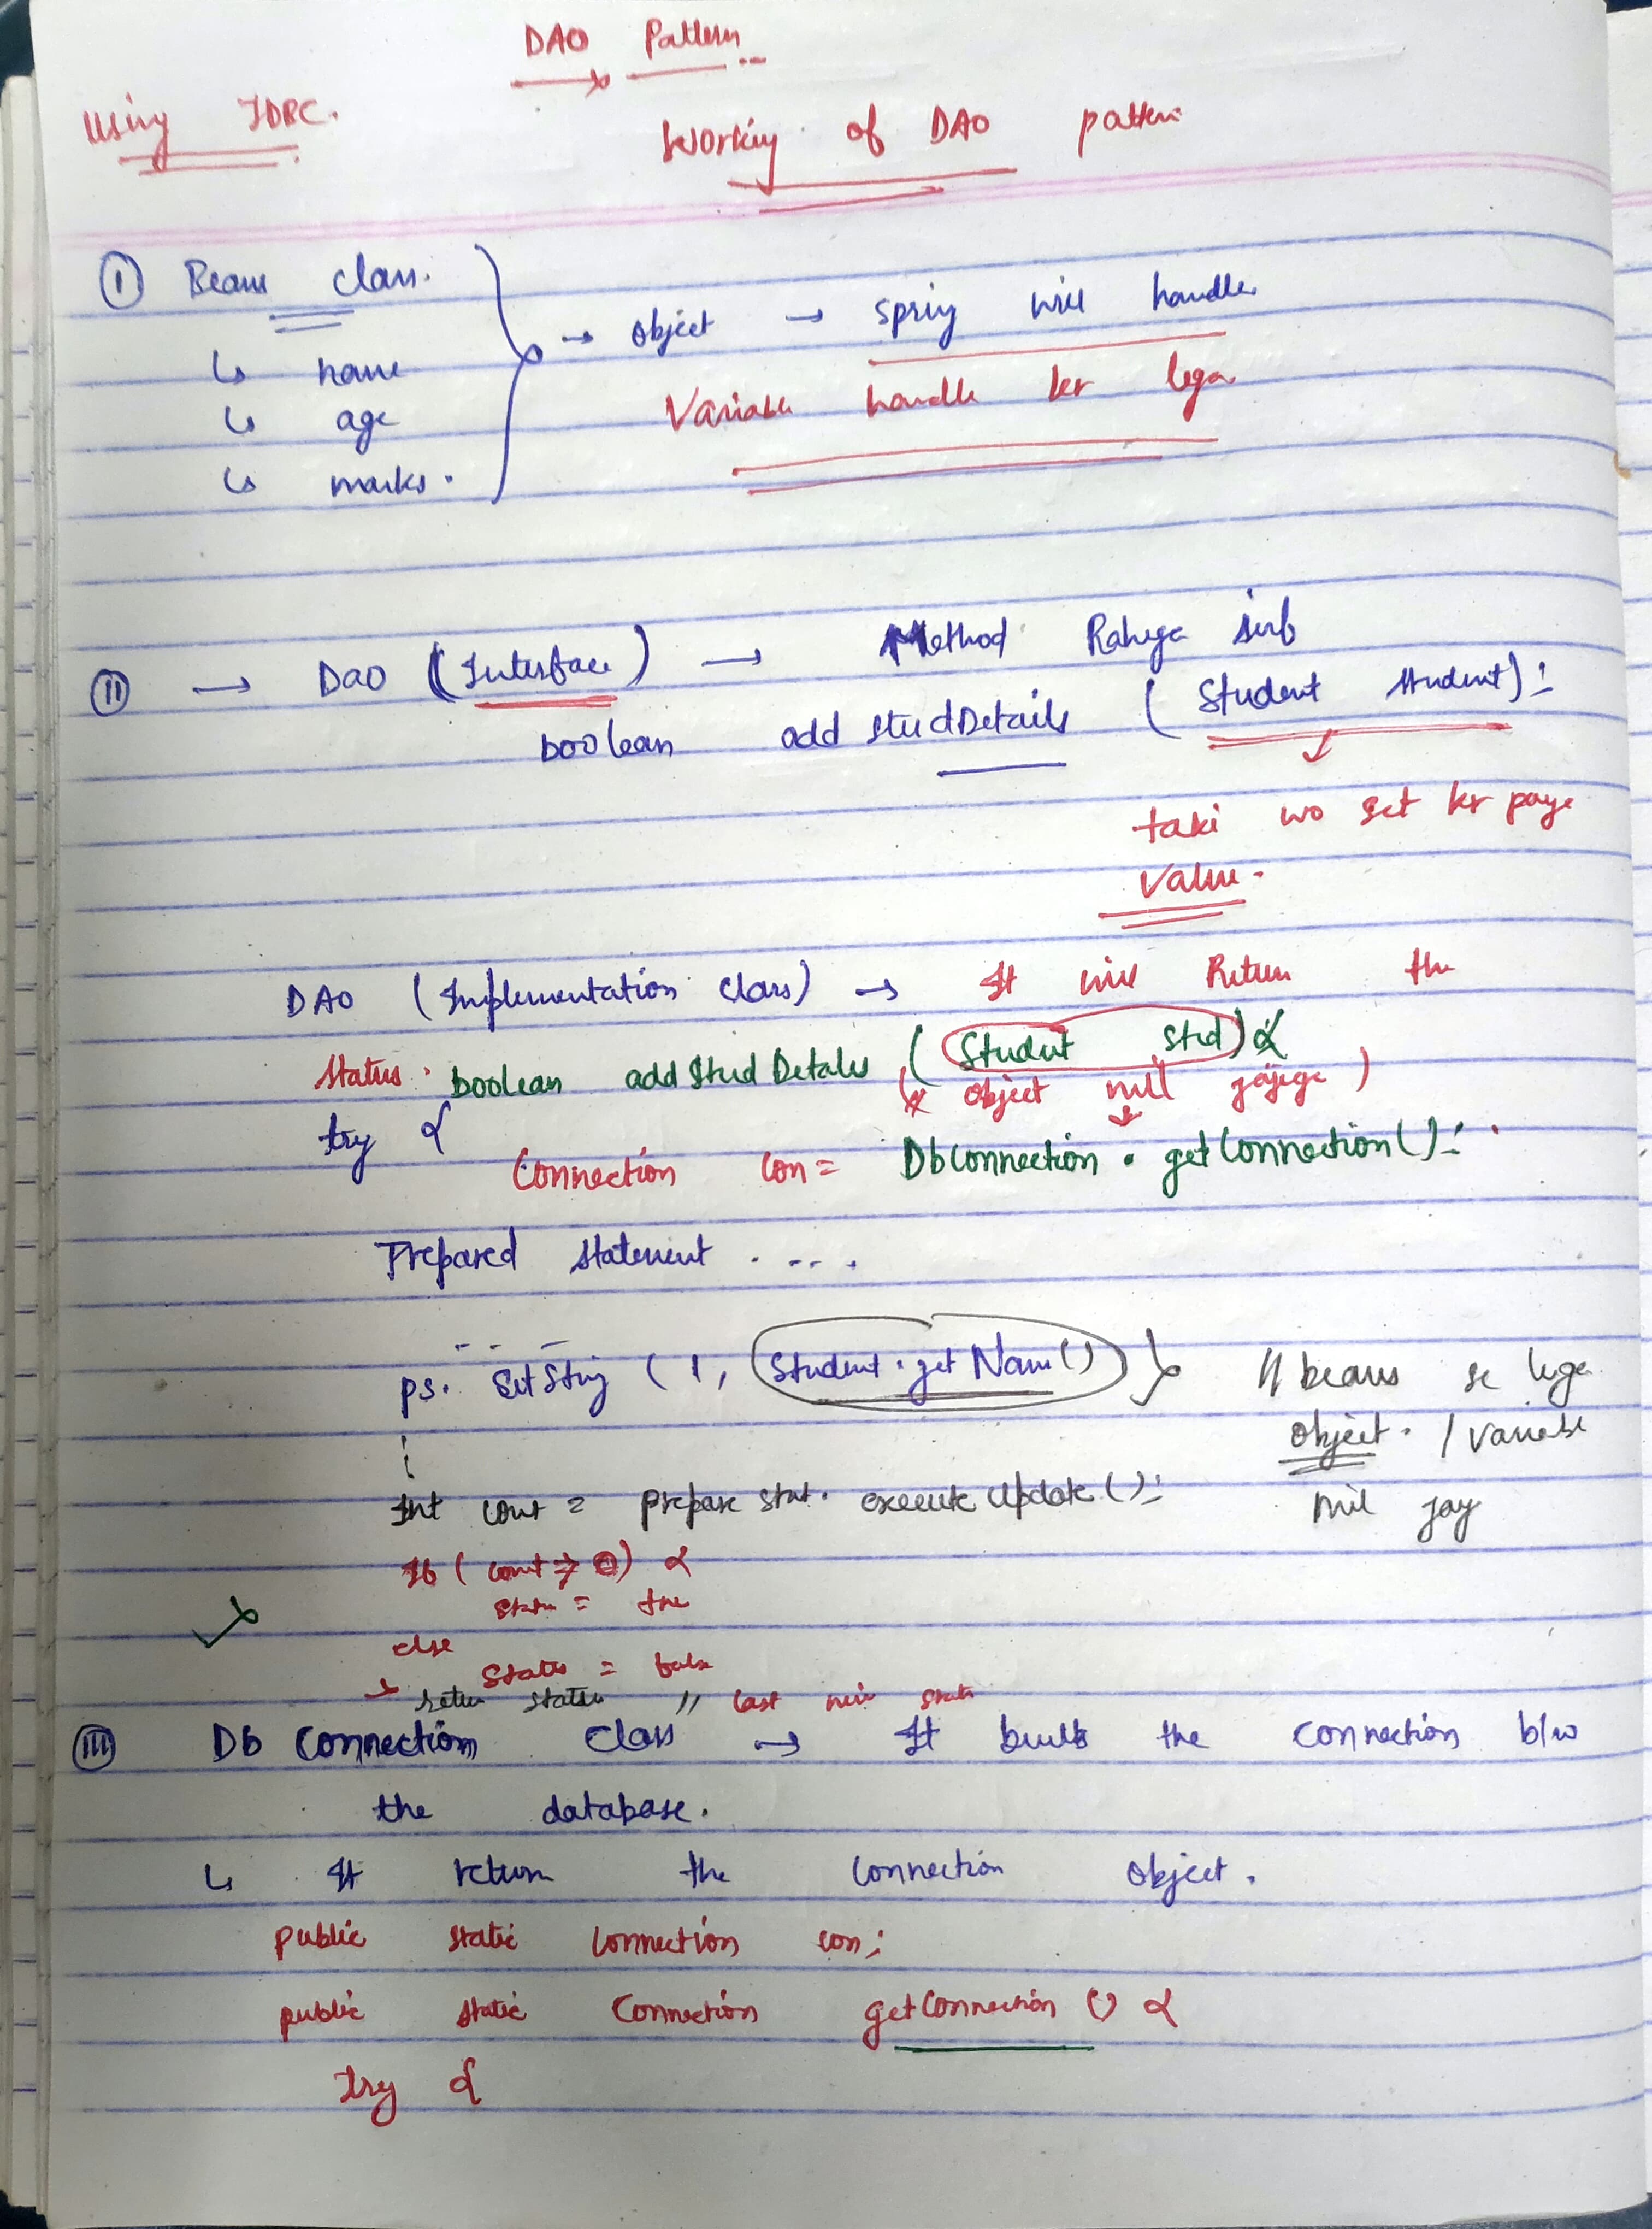 DAO Pattern
Using JDBC.
Working of DAO pattern
(I) Beans class.
↳ name
↳ age
↳ marks.
→ object → spring will handle
Variable handle kr lega
(II) → DAO (Interface) → Method Rahega sirf
boolean addStudDetails (Student student);
taki wo set kr paye
value.
DAO (Implementation class) → It will Return the
status. boolean addStudDetales (Student stud) {
(* object null jayega)
try {
Connection con = DbConnection.getConnection();
Prepared statement ....
ps. setString (1, Student.getName()) } // beans se lega
object. / variable
mil jay
Int count = prepare stat. execute update();
If (count > 0) {
status = true
else
status = false
return status //
(III) Db Connection Class → It builts the connection b/w
the database.
↳ It return the connection object.
public static connection con;
public static Connection getConnection () {
try {